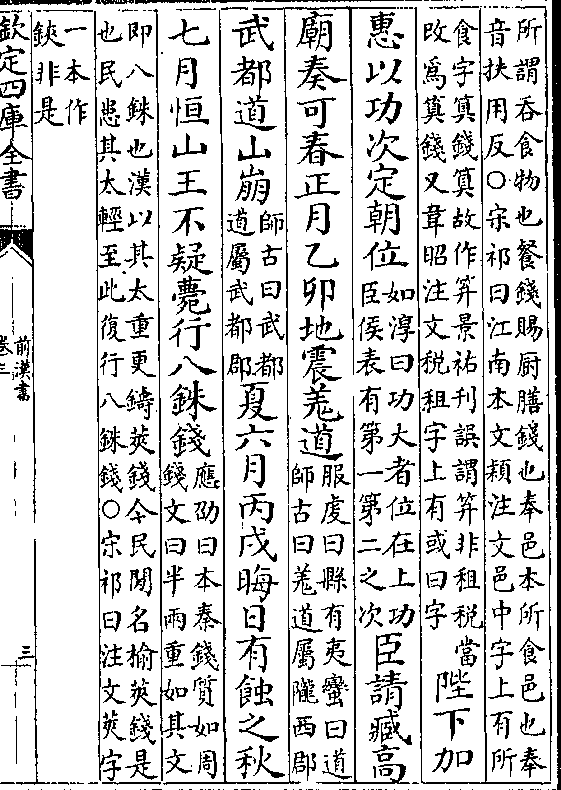 所謂吞食物也餐錢賜厨膳錢也奉邑本所食邑也奉
音扶用反○宋祁曰江南本文頛注文邑中字上有所
食字算錢算故作筭景祐刊誤謂筭非租税當
改為算錢又韋昭注文税租字上有或曰字
陛下加
惠以功次定朝位
如淳曰功大者位在上功
臣侯表有第一第二之次
臣請臧高
廟奏可春正月乙卯地震羌道
服虔曰縣有夷蠻曰道
師古曰羌道屬隴西郡
武都道山崩
師古曰武都
道屬武都郡
夏六月丙戌晦日有蝕之秋
七月恒山王不疑薨行八銖錢
應劭曰本秦錢質如周
錢文曰半兩重如其文
即八銖也漢以其太重更鑄莢錢今民間名榆莢錢是
也民患其太輕至此復行八銖錢○宋祁曰注文莢字
一本作
鋏非是
欽定四庫全書
前漢書
卷三
三